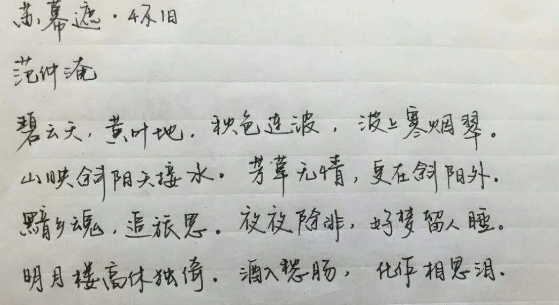 苏幕遮·怀旧
范仲淹
碧云天，黄叶地。秋色连波，波上寒烟翠。
山映斜阳天接水。芳草无情，更在斜阳外。
黯乡魂，追旅思。夜夜除非，好梦留人睡。
明月楼高休独倚。酒入愁肠，化作相思泪。